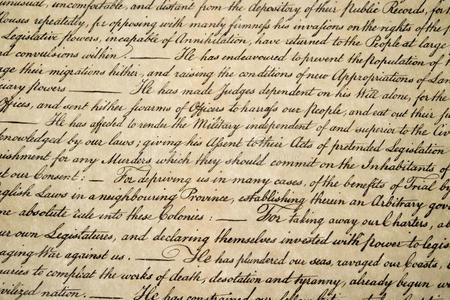 unusual, uncomfortable, and distant from the depository of their Public Records, for
Houses repeatedly, for opposing with manly firmness his invasions on the rights of the
Legislative powers, incapable of Annihilation, have returned to the People at large
and convulsions within. — He has endeavoured to prevent the population of
age their migrations hither, and raising the conditions of new Appropriations of Lan
ciary powers — He has made Judges dependent on his Will alone, for the
Offices, and sent hither swarms of Officers to harrass our People, and eat out their
— He has affected to render the Military independent of and superior to the Civ
knowledged by our laws; giving his Assent to their Acts of pretended Legislation
ishment for any Murders which they should commit on the Inhabitants of
out our Consent: — For depriving us in many cases, of the benefits of Trial by
nglish Laws in a neighbouring Province, establishing therein an Arbitrary gove
me absolute rule into these Colonies: — For taking away our Charters, a
our own Legislatures, and declaring themselves invested with power to legis
aging War against us. — He has plundered our seas, ravaged our Coasts,
naries to compleat the works of death, desolation and tyranny, already begun w
civilized nation. — He has constrained our fellow